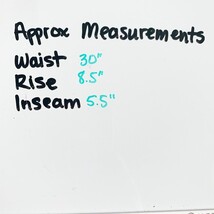 Approx Measurements
Waist 30"
Rise 8.5"
Inseam 5.5"